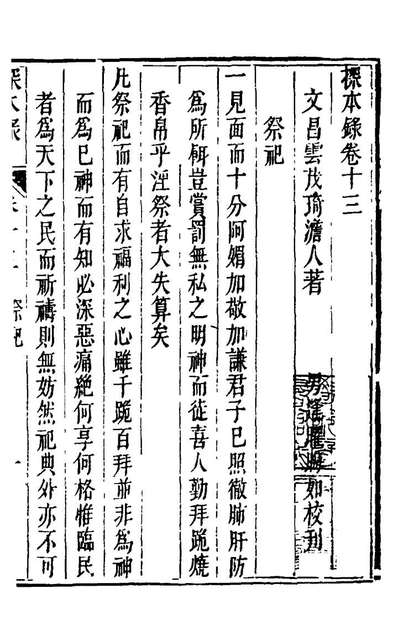 探本錄卷十三
文昌雲茂琦澹人著
男逢如校刊
祭祀
一見面而十分阿媚加敬加謙君子已照徹肺肝防
為所餌豈賞罰無私之明神而徒喜人勤拜跪燒
香帛乎淫祭者大失算矣
凡祭祀而有自求福利之心雖千跪百拜並非為神
而為己神而有知必深惡痛絕何享何格惟臨民
者為天下之民而祈禱則無妨然祀典外亦不可
探本錄 卷十三 祭祀 一